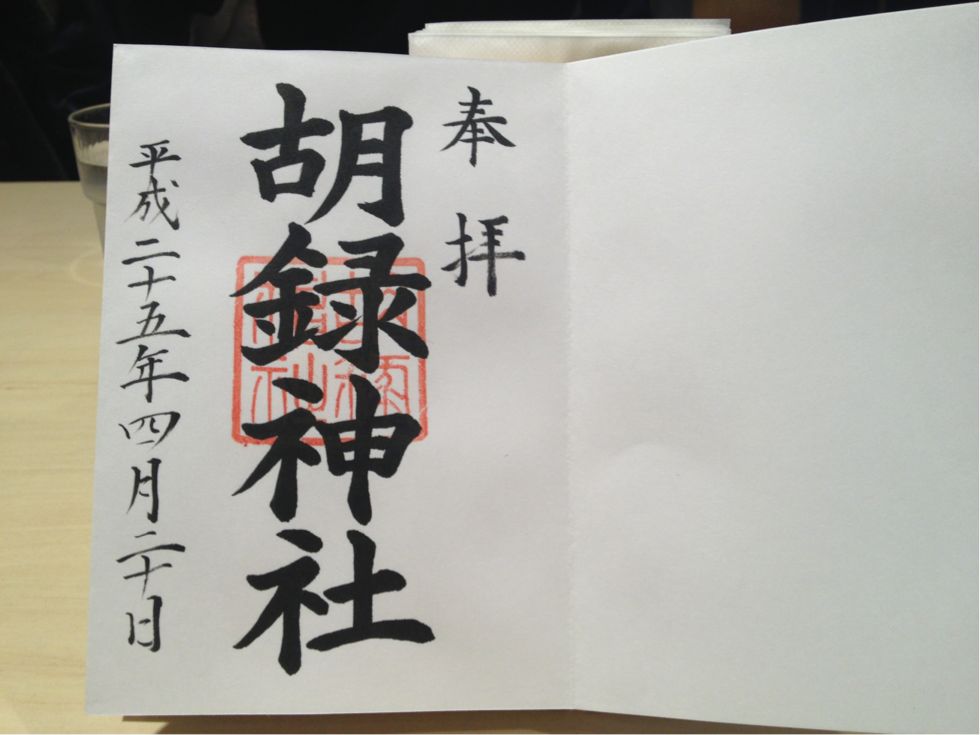 奉拝
胡録神社
平成二十五年四月二十日